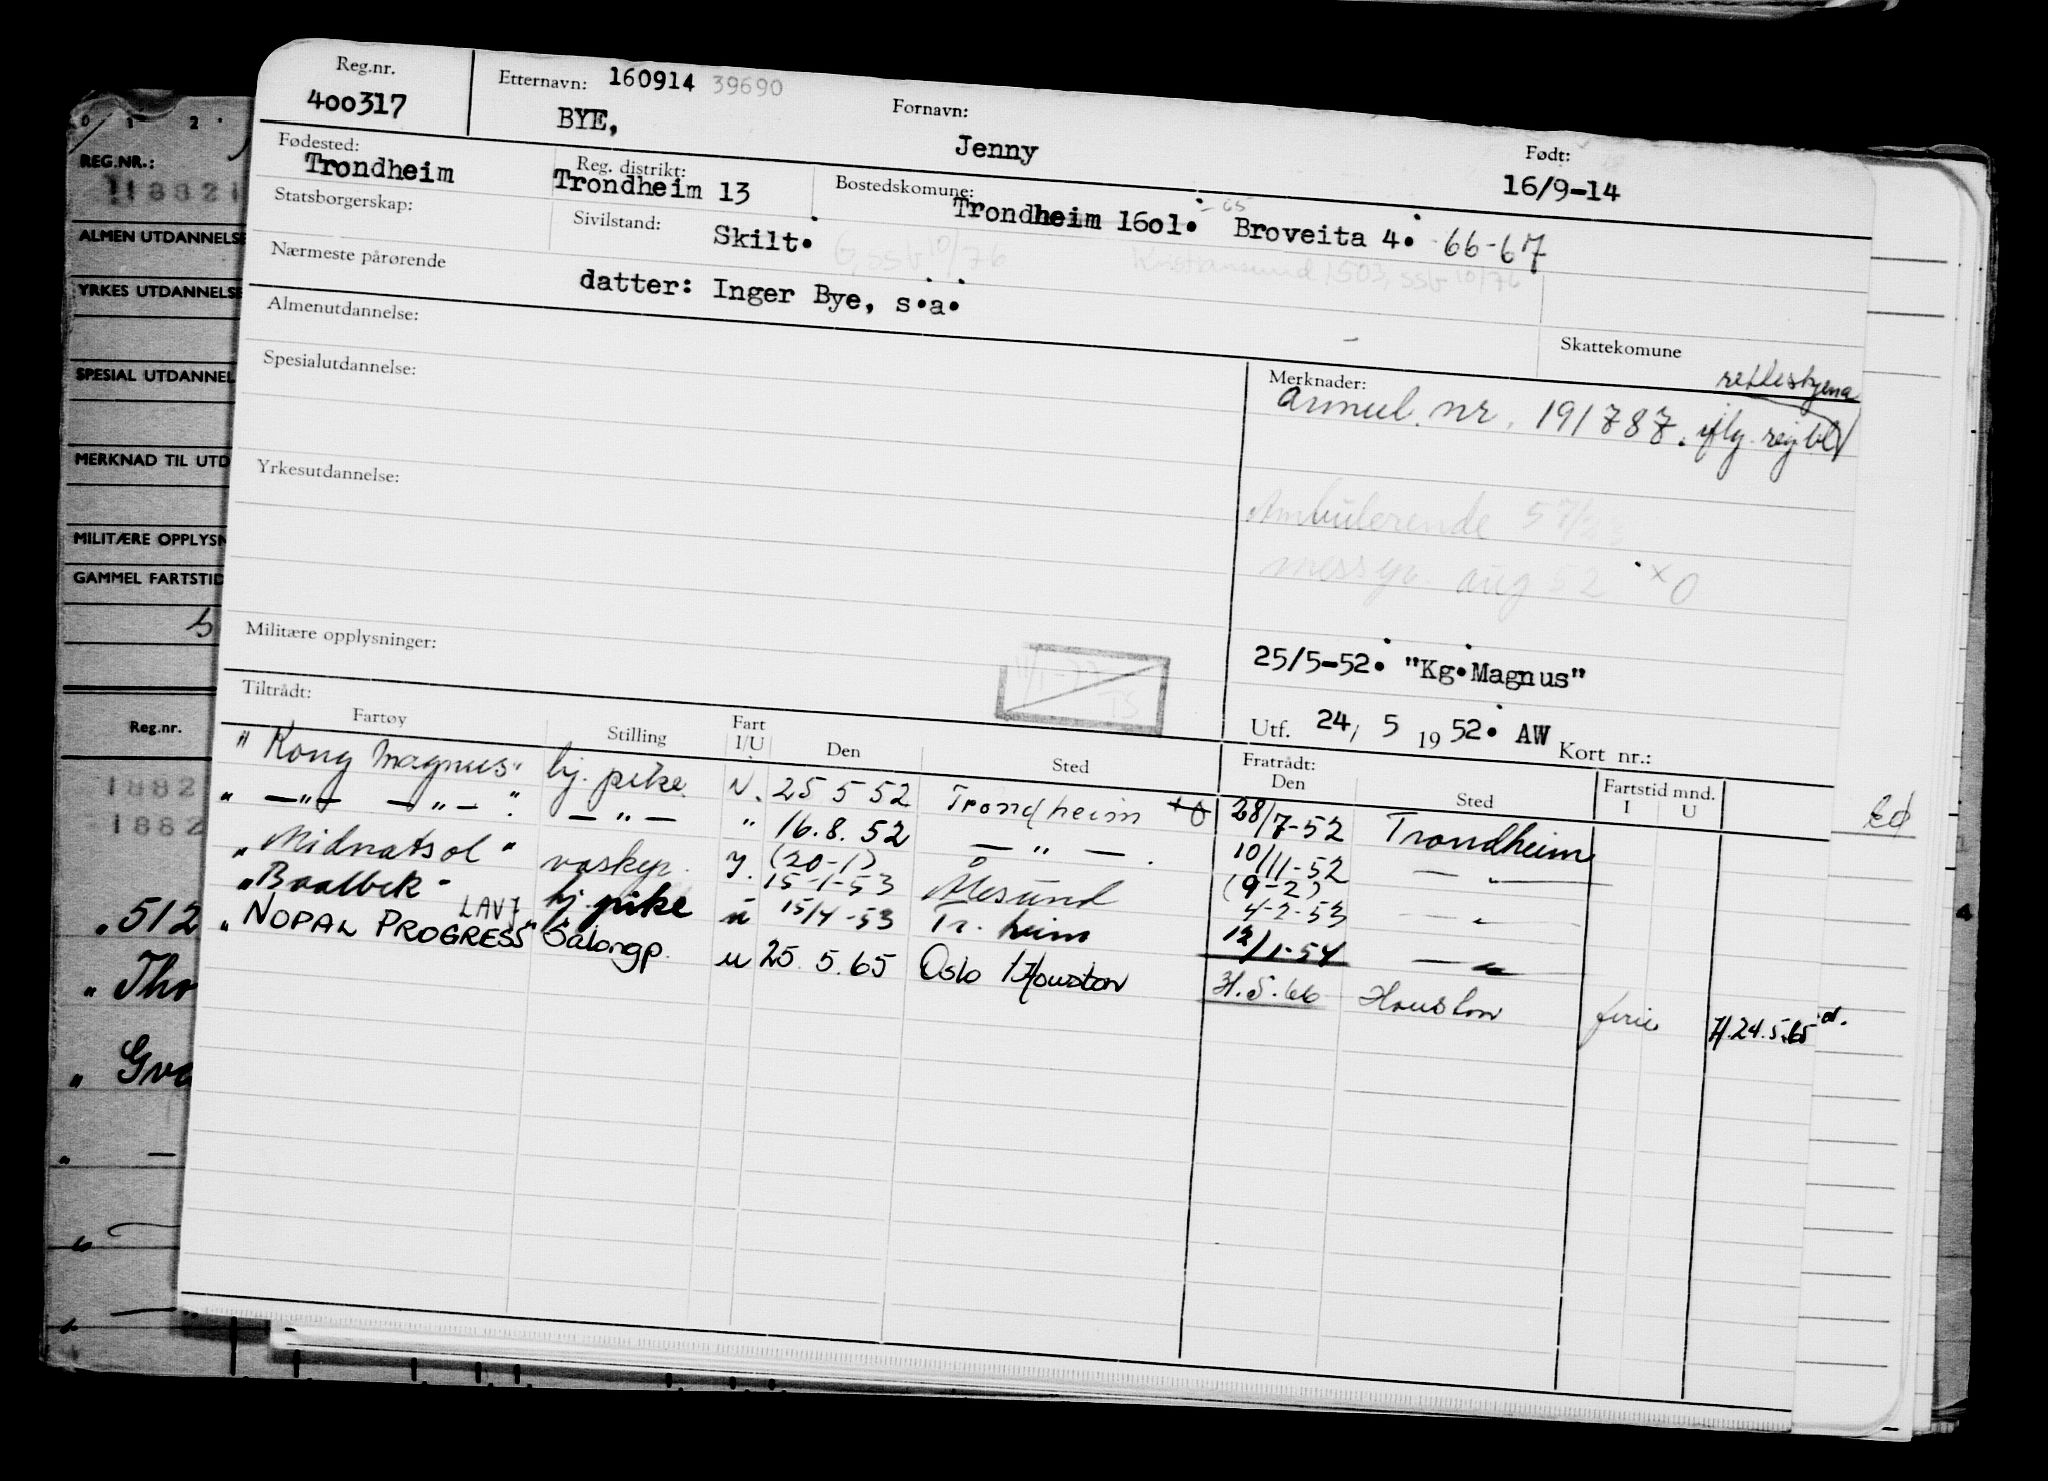 Reg.nr. Etternavn: 160914 39690 Fornavn: Født:
400317 BYE, Jenny 16/9-14
Fødested: Reg. distrikt: Bostedskomune:
Trondheim Trondheim 13 Trondheim 1601. Broveita 4. -66-67
Statsborgerskap: Sivilstand: Skilt.
Kristiansund 1503, SSb 10/76
Nærmeste pårørende datter: Inger Bye, s.a.
Almenutdannelse: Skattekomune
Spesialutdannelse: Merknader:
annul. nr. 191787. iflg.
Yrkesutdannelse:
Ambulerende
aug 52 x O
Militære opplysninger:
25/5-52. "Kg.Magnus"
Utf. 24, 5 1952. AW Kort nr.:
Tiltrådt: Fratrådt:
Fartøy Stilling Fart I/U Den Sted Den Sted Fartstid mnd. I U
"Kong Magnus" bj. pike N. 25 5 52 Trondheim +O 28/7-52 Trondheim
" —"— —"— ". —"— " 16.8.52 —"—. 10/11-52 —"—
"Midnatsol" vaskep. (20-1) 15-1-53 Ålesund (9-2) 4-2-53 —"—
"Baalbek" LAVJ bj. pike u 15/4-53 Tr.heim 12/1-54 —"—
"NOPAL PROGRESS" Salongp. u 25.5.65 Oslo / Houston 31.5.66 Houston ferie H.24.5.65
REG.NR.:
ALMEN UTDANNELSE
YRKES UTDANNELSE
SPESIAL UTDANNEL
MERKNAD TIL UTD
MILITÆRE OPPLYSN
GAMMEL FARTSTID
Reg.nr.
1882
1882
"512
"Tho